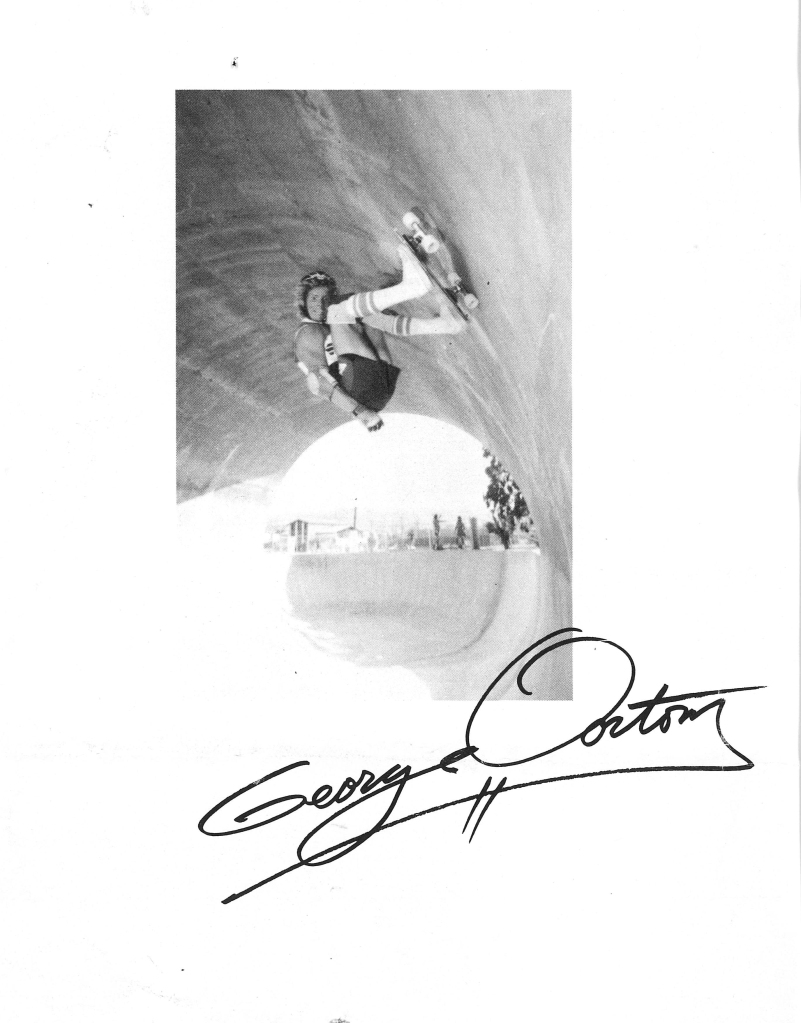 George Orton